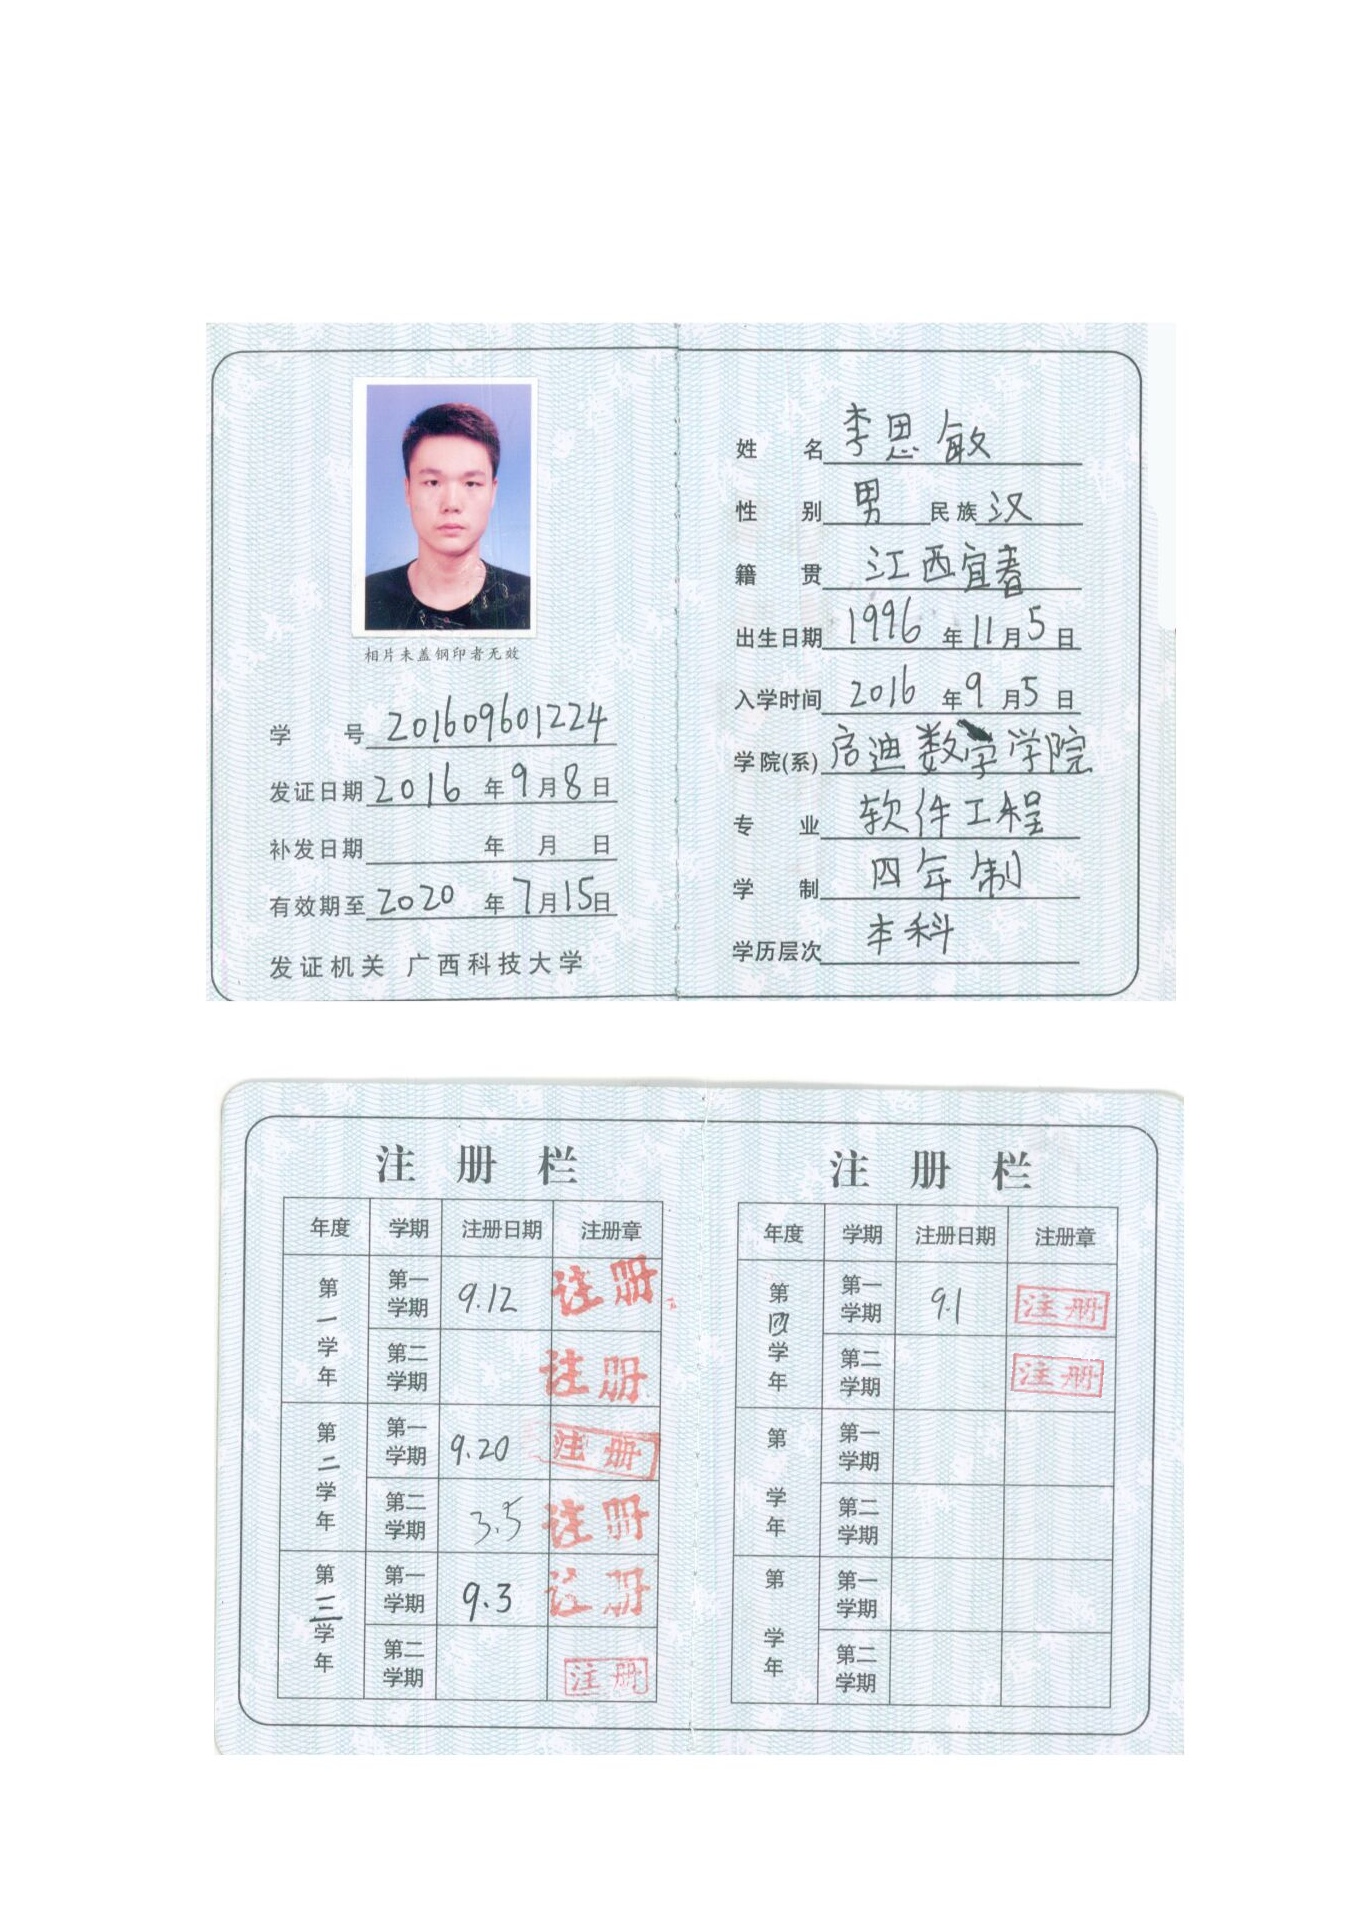 相片未盖钢印者无效
学 号 201609601224
发证日期 2016 年 9 月 8 日
补发日期 年 月 日
有效期至 2020 年 7 月 15 日
发证机关 广西科技大学
姓 名 李思敏
性 别 男 民族 汉
籍 贯 江西宜春
出生日期 1996 年 11 月 5 日
入学时间 2016 年 9 月 5 日
学院(系) 启迪数字学院
专 业 软件工程
学 制 四年制
学历层次 本科
注册栏
年度 学期 注册日期 注册章
第一学年 第一学期 9.12 注册
第二学期 注册
第二学年 第一学期 9.20 注册
第二学期 3.5 注册
第三学年 第一学期 9.3 注册
第二学期 注册
注册栏
年度 学期 注册日期 注册章
第四学年 第一学期 9.1 注册
第二学期 注册
第 学年 第一学期
第二学期
第 学年 第一学期
第二学期